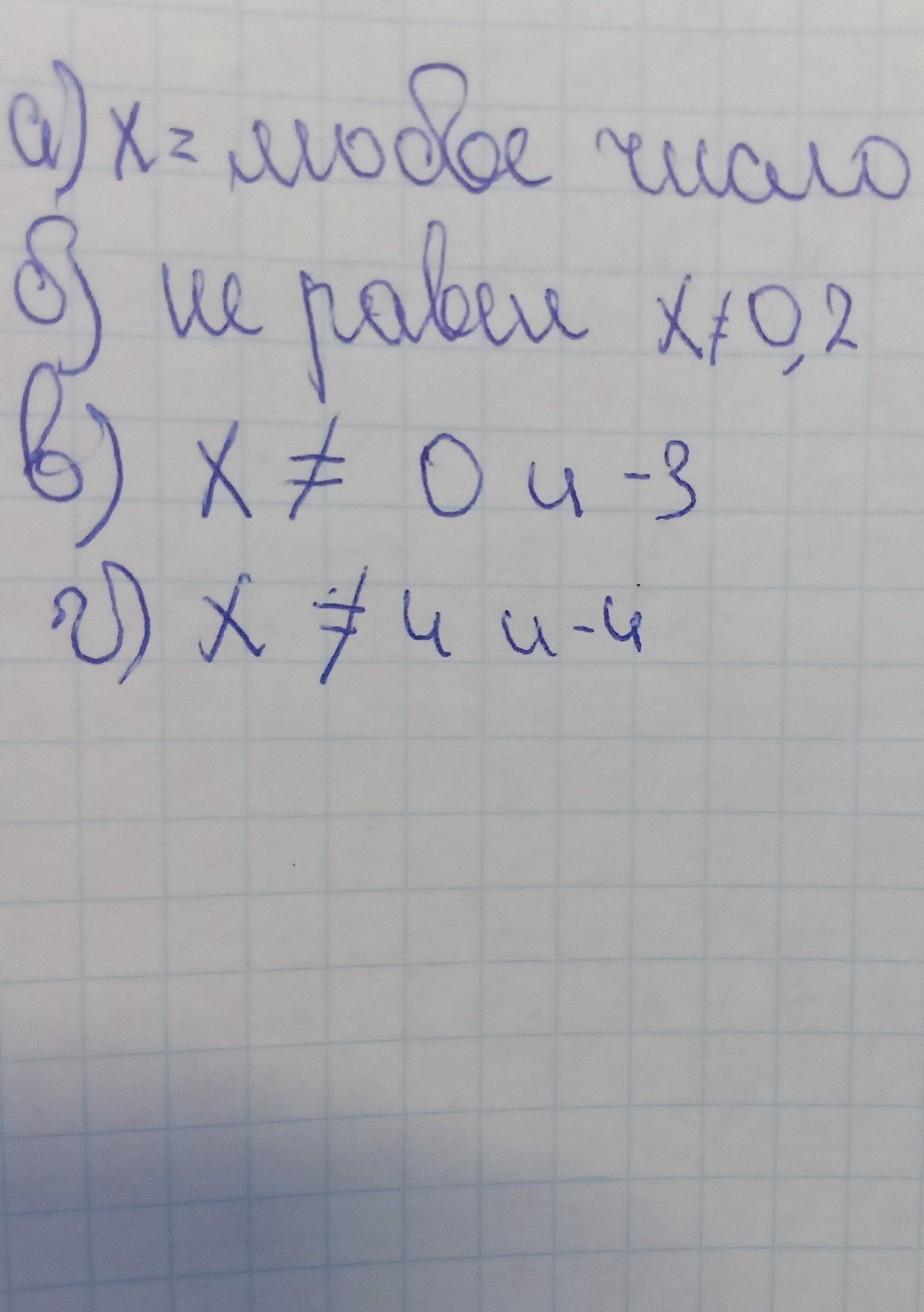 а) x = любое число
б) не равен x ≠ 0,2
в) x ≠ 0 и -3
г) x ≠ 4 и -4